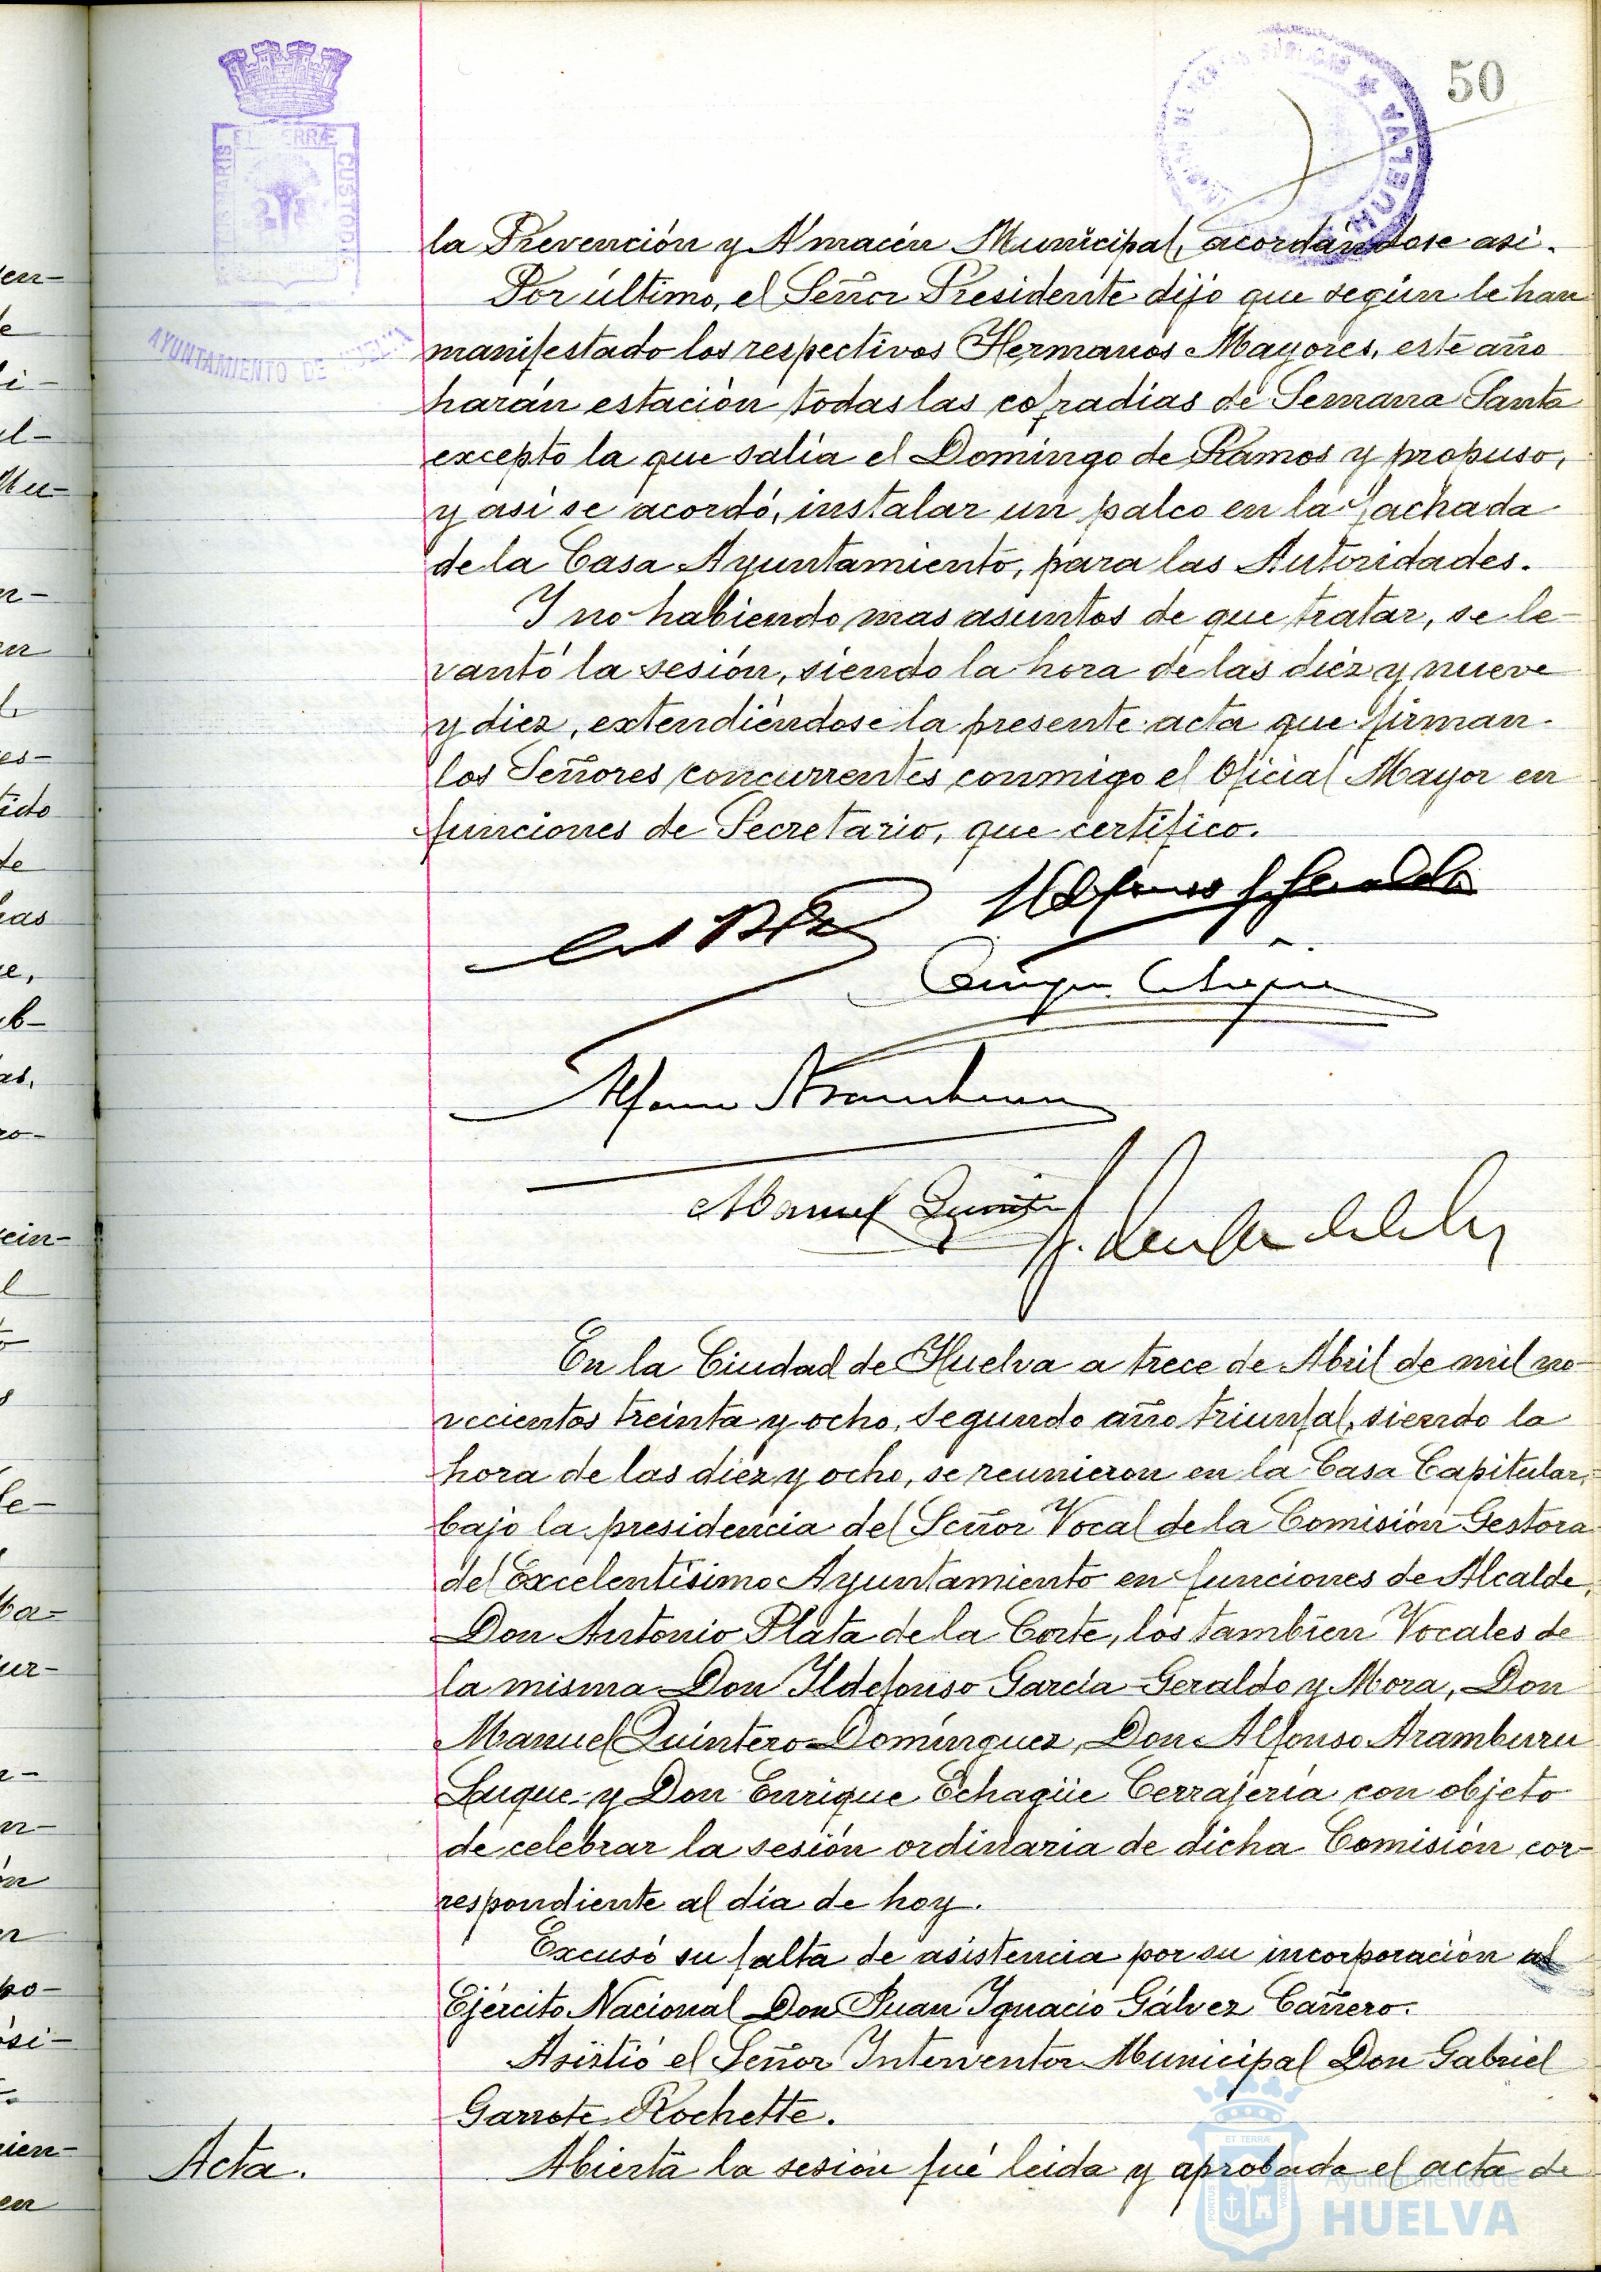 50
ET TERRÆ
CUSTODIA
AYUNTAMIENTO DE HUELVA
HUELVA
la Prevención y Almacén Municipal, acordándose asi.
Por último, el Señor Presidente dijo que según le han
manifestado los respectivos Hermanos Mayores, este año
harán estación todas las cofradías de Semana Santa
excepto la que salía el Domingo de Ramos y propuso,
y así se acordó, instalar un palco en la fachada
de la Casa Ayuntamiento, para las Autoridades.
Y no habiendo mas asuntos de que tratar, se le-
vantó la sesión, siendo la hora de las diéz y nueve
y diez, extendiéndose la presente acta que firman
los Señores concurrentes conmigo el Oficial Mayor en
funciones de Secretario, que certifico.
Alfonso Aramburu
Manuel Quintero
En la Ciudad de Huelva a trece de Abril de mil no-
vecientos treinta y ocho, segundo año triunfal, siendo la
hora de las diez y ocho, se reunieron en la Casa Capitular,
bajo la presidencia del Señor Vocal de la Comisión Gestora
del Excelentísimo Ayuntamiento en funciones de Alcalde,
Don Antonio Plata de la Corte, los también Vocales de
la misma Don Ildefonso García Geraldo y Mora, Don
Manuel Quintero Domínguez, Don Alfonso Aramburu
Luque y Don Enrique Echagüe Cerrajería con objeto
de celebrar la sesión ordinaria de dicha Comisión cor-
respondiente al día de hoy.
Excusó su falta de asistencia por su incorporación al
Ejército Nacional Don Juan Ignacio Gálvez Cañero.
Asistió el Señor Interventor Municipal Don Gabriel
Garrote Rochette.
Acta.
Abierta la sesión fué leida y aprobada el acta de
Ayuntamiento de
HUELVA